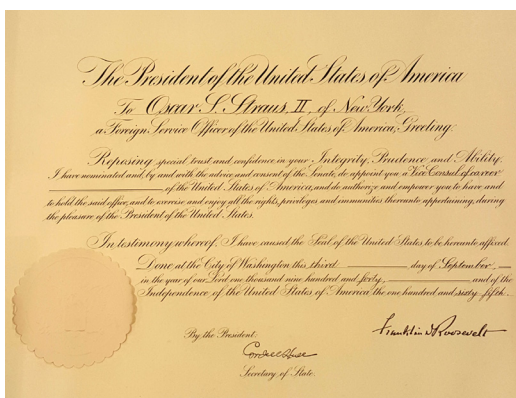 The President of the United States of America
To Oscar S. Straus, II of New York,
a Foreign Service Officer of the United States of America, Greeting:
Reposing special trust and confidence in your Integrity, Prudence and Ability,
I have nominated and, by and with the advice and consent of the Senate, do appoint you a Vice Consul of career
of the United States of America, and do authorize and empower you to have and
to hold the said office, and to exercise and enjoy all the rights, privileges and immunities thereunto appertaining, during
the pleasure of the President of the United States.
In testimony whereof, I have caused the Seal of the United States to be hereunto affixed.
Done at the City of Washington this third day of September,
in the year of our Lord one thousand nine hundred and forty, and of the
Independence of the United States of America the one hundred and sixty fifth.
By the President:
Franklin D Roosevelt
Cordell Hull
Secretary of State.